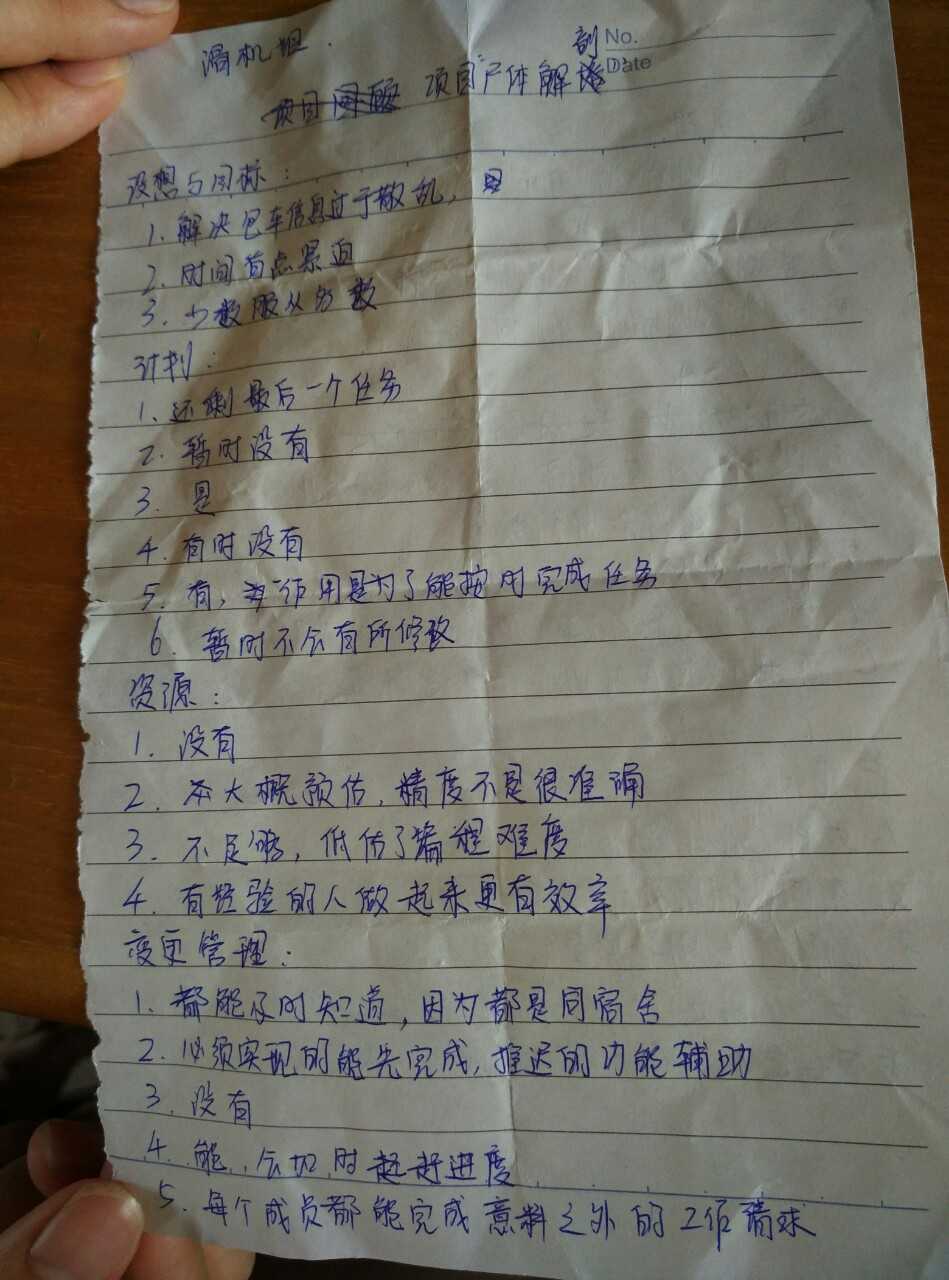 滑机组. 剖 No.
Date
项目尸体解
设想与目标:
1. 解决包车信息过于散乱,
2. 时间有点紧迫
3. 少数服从多数
计划:
1. 还剩最后一个任务
2. 暂时没有
3. 是
4. 有时没有
5. 有, 作用是为了能按时完成任务
6. 暂时不会有所修改
资源:
1. 没有
2. 本大概预估, 精度不是很准确
3. 不足够, 低估了编程难度
4. 有经验的人做起来更有效率
变更管理:
1. 都能及时知道, 因为都是同宿舍
2. 必须实现的能先完成, 推迟的功能辅助
3. 没有
4. 能, 会加时赶进度
5. 每个成员都能完成意料之外的工作请求